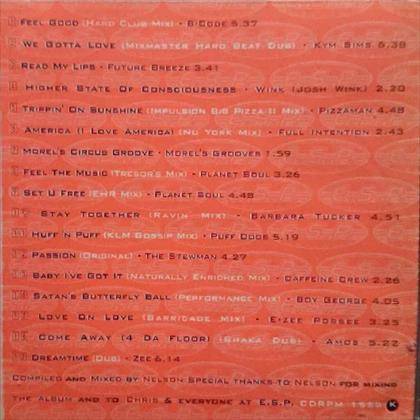 Feel Good (Hard Club Mix) • B-Code 5.37
We Gotta Love (Mixmaster Hard Beat Dub) • Kym Sims 5.39
Read My Lips • Future Breeze 3.41
Higher State Of Consciousness • Wink (Josh Wink) 2.20
Trippin' On Sunshine (Impulsion Big Pizza II Mix) • Pizzaman 4.48
America (I Love America) (Nu York Mix) • Full Intention 2.43
Morel's Circus Groove • Morel's Grooves 1.59
Feel The Music (Tresor's Mix) • Planet Soul 3.26
Set U Free (EHR Mix) • Planet Soul 4.48
Stay Together (Ravin Mix) • Barbara Tucker 4.51
Huff 'n Puff (KLM Gossip Mix) • Puff Dogs 5.19
Passion (Original) • The Stewman 4.27
Baby I've Got It (Naturally Enriched Mix) • Caffeine Crew 2.26
Satan's Butterfly Ball (Performance Mix) • Boy George 4.05
Love On Love (Barricade Mix) • E-Zee Possee 3.25
Come Away (4 Da Floor) (Shaka Dub) • Amos 5.22
Dreamtime (Dub) • Zee 6.14
Compiled and Mixed by Nelson Special thanks to Nelson for mixing
the album and to Chris & everyone at E.S.P. CDRPM K